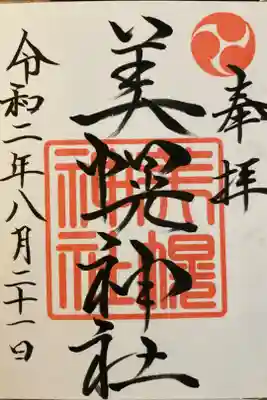 奉拝
美幌神社
美幌
神社
令和二年八月二十一日